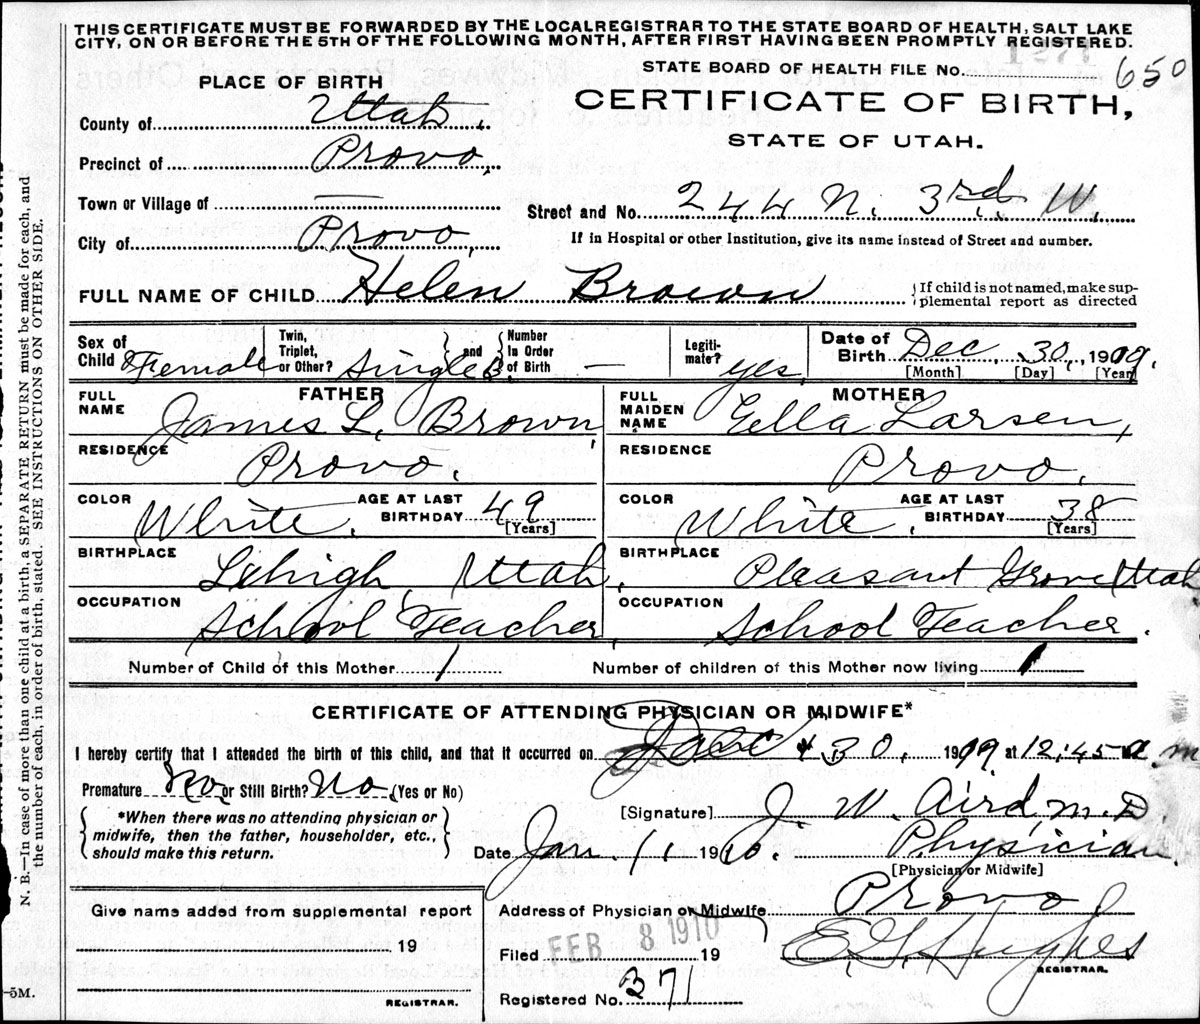 THIS CERTIFICATE MUST BE FORWARDED BY THE LOCAL REGISTRAR TO THE STATE BOARD OF HEALTH, SALT LAKE
CITY, ON OR BEFORE THE 5TH OF THE FOLLOWING MONTH, AFTER FIRST HAVING BEEN PROMPTLY REGISTERED.
STATE BOARD OF HEALTH FILE No. 650
PLACE OF BIRTH
CERTIFICATE OF BIRTH,
STATE OF UTAH.
County of Utah.
Precinct of Provo,
Town or Village of —
Street and No. 244 N. 3rd. W.
City of Provo,
If in Hospital or other Institution, give its name instead of Street and number.
FULL NAME OF CHILD Helen Brown
If child is not named, make sup-
plemental report as directed
Sex of Child Female
Twin, Triplet, or Other? Single
and Number In Order of Birth —
Legiti-mate? yes.
Date of Birth Dec 30, 1909.
[Month] [Day] [Year]
FATHER
MOTHER
FULL NAME James L. Brown,
FULL MAIDEN NAME Ella Larsen,
RESIDENCE Provo.
RESIDENCE Provo.
COLOR White. AGE AT LAST BIRTHDAY 49 [Years]
COLOR White. AGE AT LAST BIRTHDAY 38 [Years]
BIRTHPLACE Lehigh, Utah,
BIRTHPLACE Pleasant Grove Utah
OCCUPATION School Teacher,
OCCUPATION School Teacher.
Number of Child of this Mother 1
Number of children of this Mother now living 1
CERTIFICATE OF ATTENDING PHYSICIAN OR MIDWIFE*
I hereby certify that I attended the birth of this child, and that it occurred on 30, 1909 at 12:45 a.m
Premature No, or Still Birth? No (Yes or No)
*When there was no attending physician or
midwife, then the father, householder, etc.,
should make this return.
[Signature] J. W. Aird M.D.
Date Jan. 11 1910. Physician
[Physician or Midwife]
Address of Physician or Midwife Provo
Give name added from supplemental report
19
REGISTRAR.
Filed FEB 8 1910 19
E. G. Hughes
REGISTRAR.
Registered No. 371
-5M.
N. B.—In case of more than one child at a birth, a SEPARATE RETURN must be made for each, and
the number of each, in order of birth, stated. SEE INSTRUCTIONS ON OTHER SIDE.